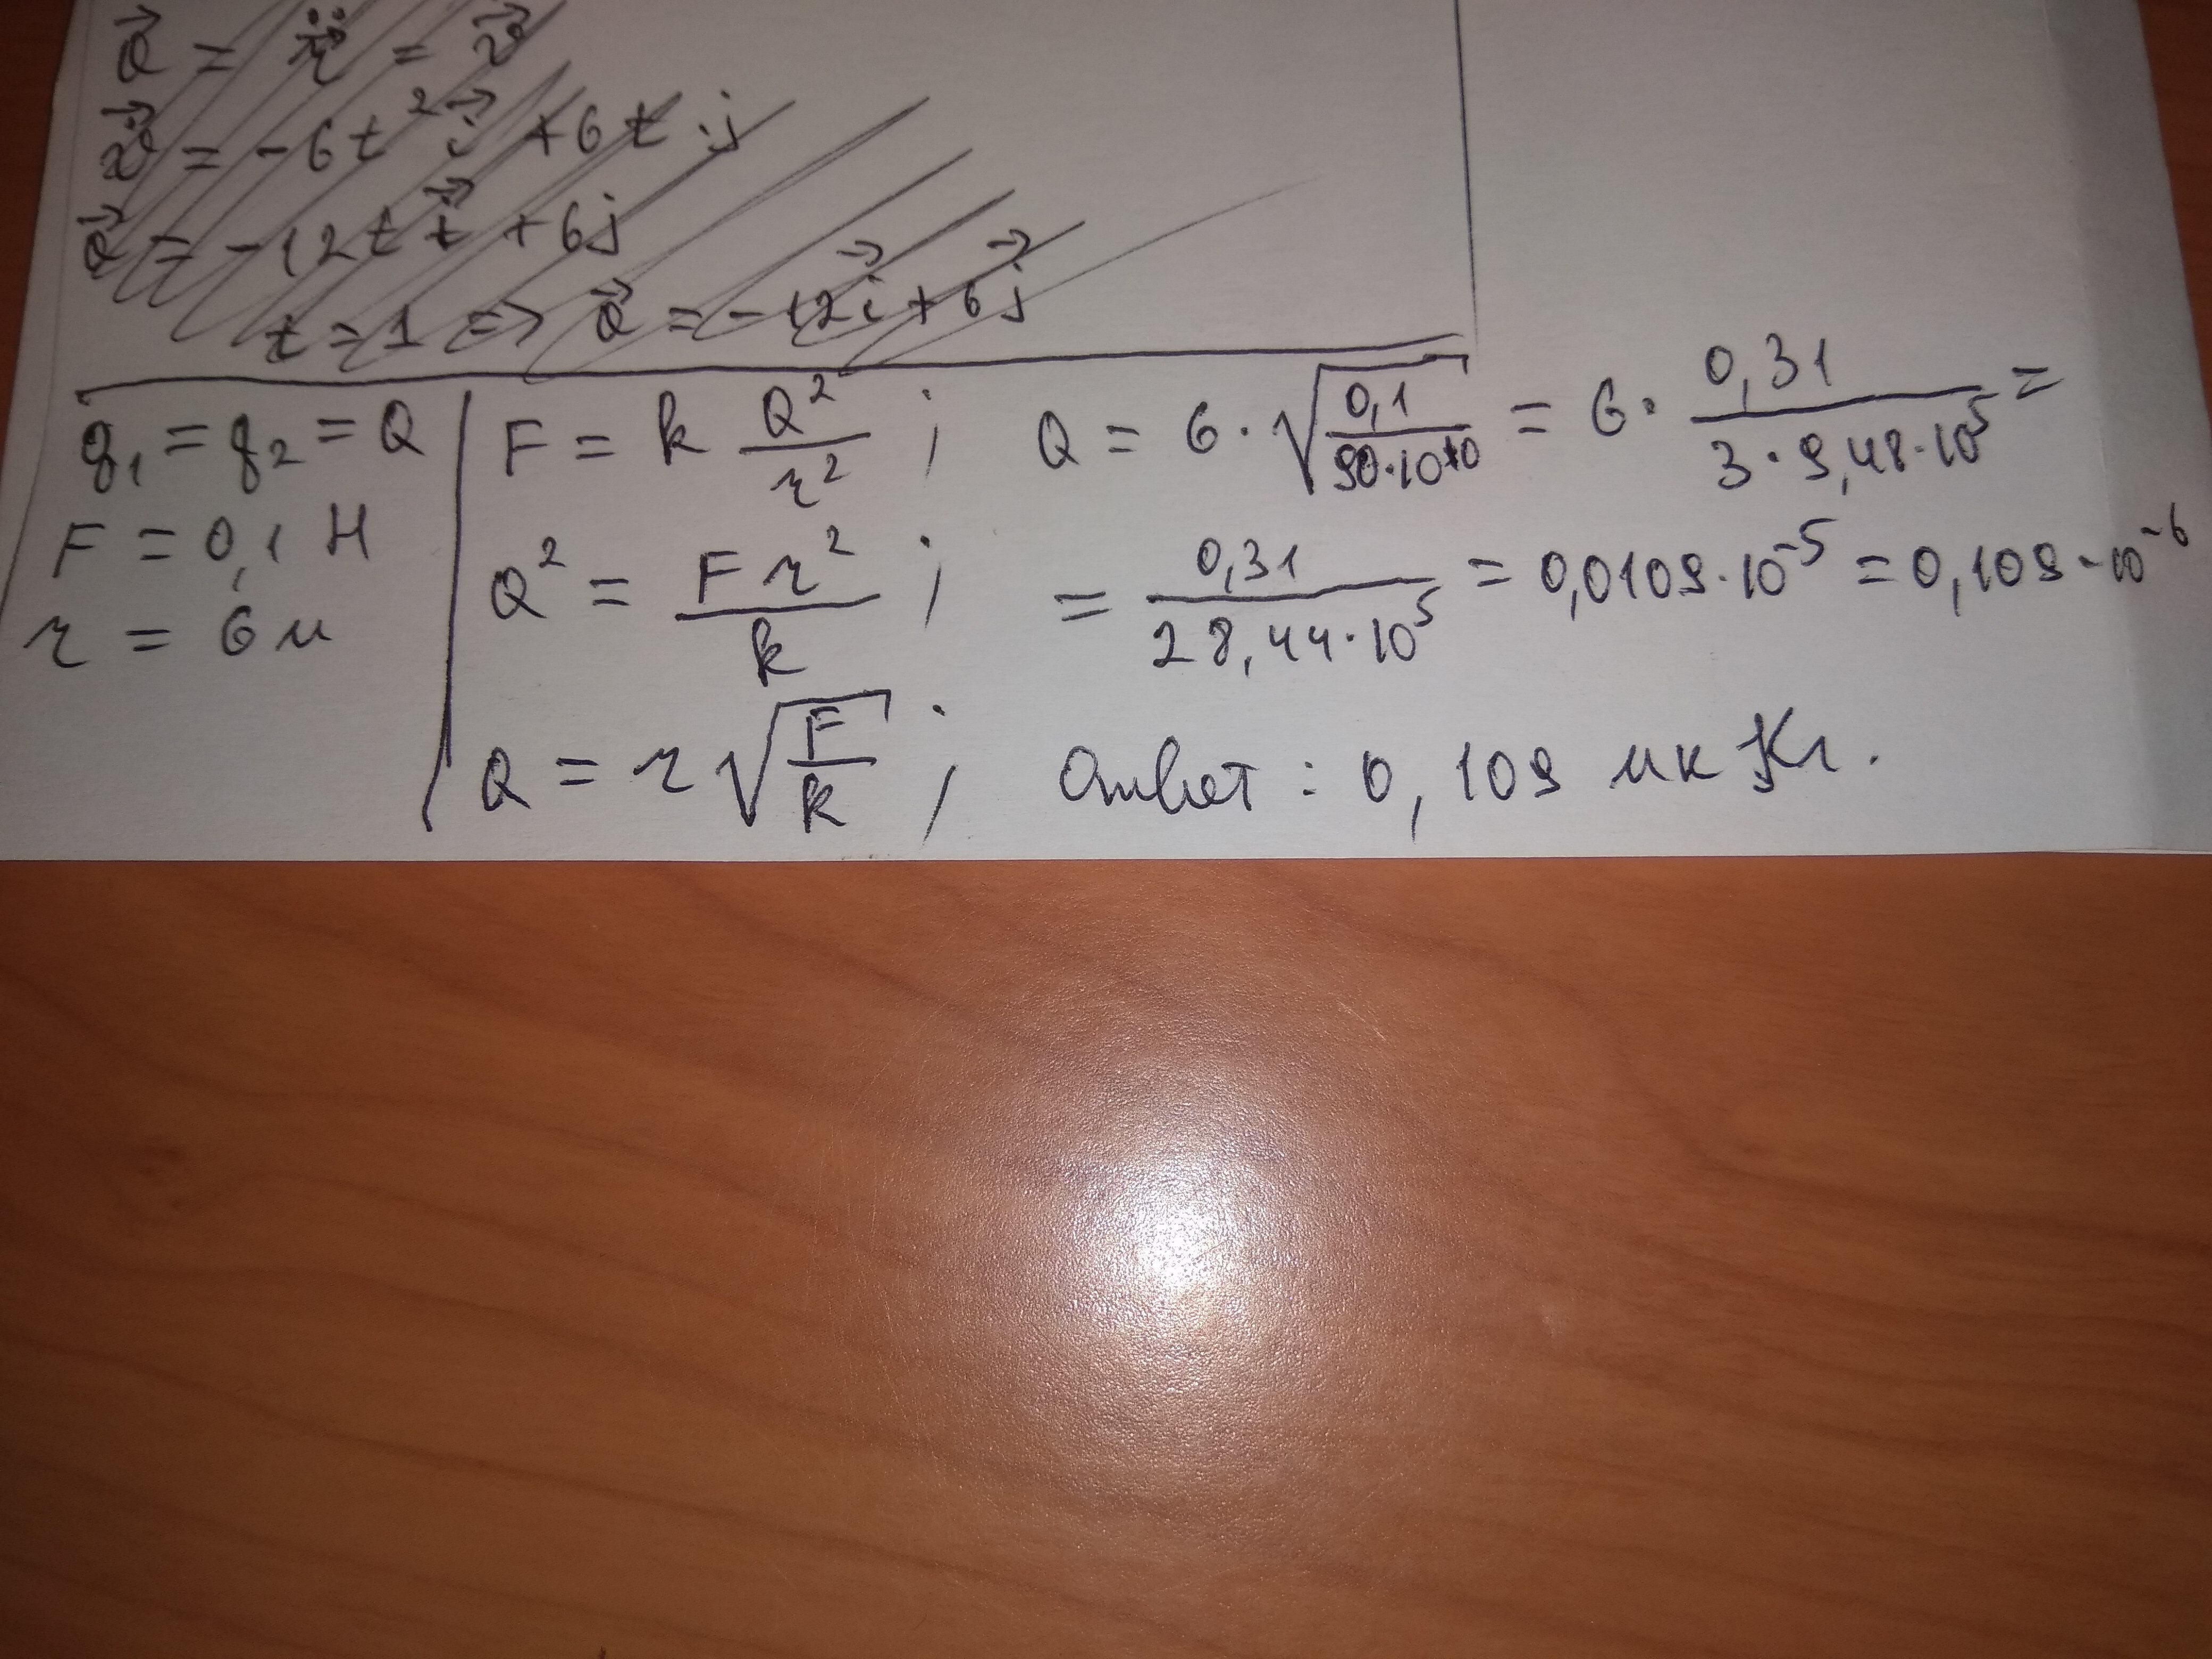 a⃗ = r̈⃗ = v̇⃗
v⃗ = -6t² i⃗ + 6t · j
a⃗ = -12t i⃗ + 6j
t = 1 => a⃗ = -12 i⃗ + 6 j⃗
q₁ = q₂ = Q
F = 0,1 Н
r = 6 м
F = k Q²/r² ;
Q² = F r²/k ;
Q = r √(F/k) ;
Q = 6 · √(0,1/(90·10¹⁰)) = 6 · 0,31/(3 · 9,48·10⁵) =
= 0,31/(28,44·10⁵) = 0,0109·10⁻⁵ = 0,109·10⁻⁶
Ответ : 0,109 мк Кл.